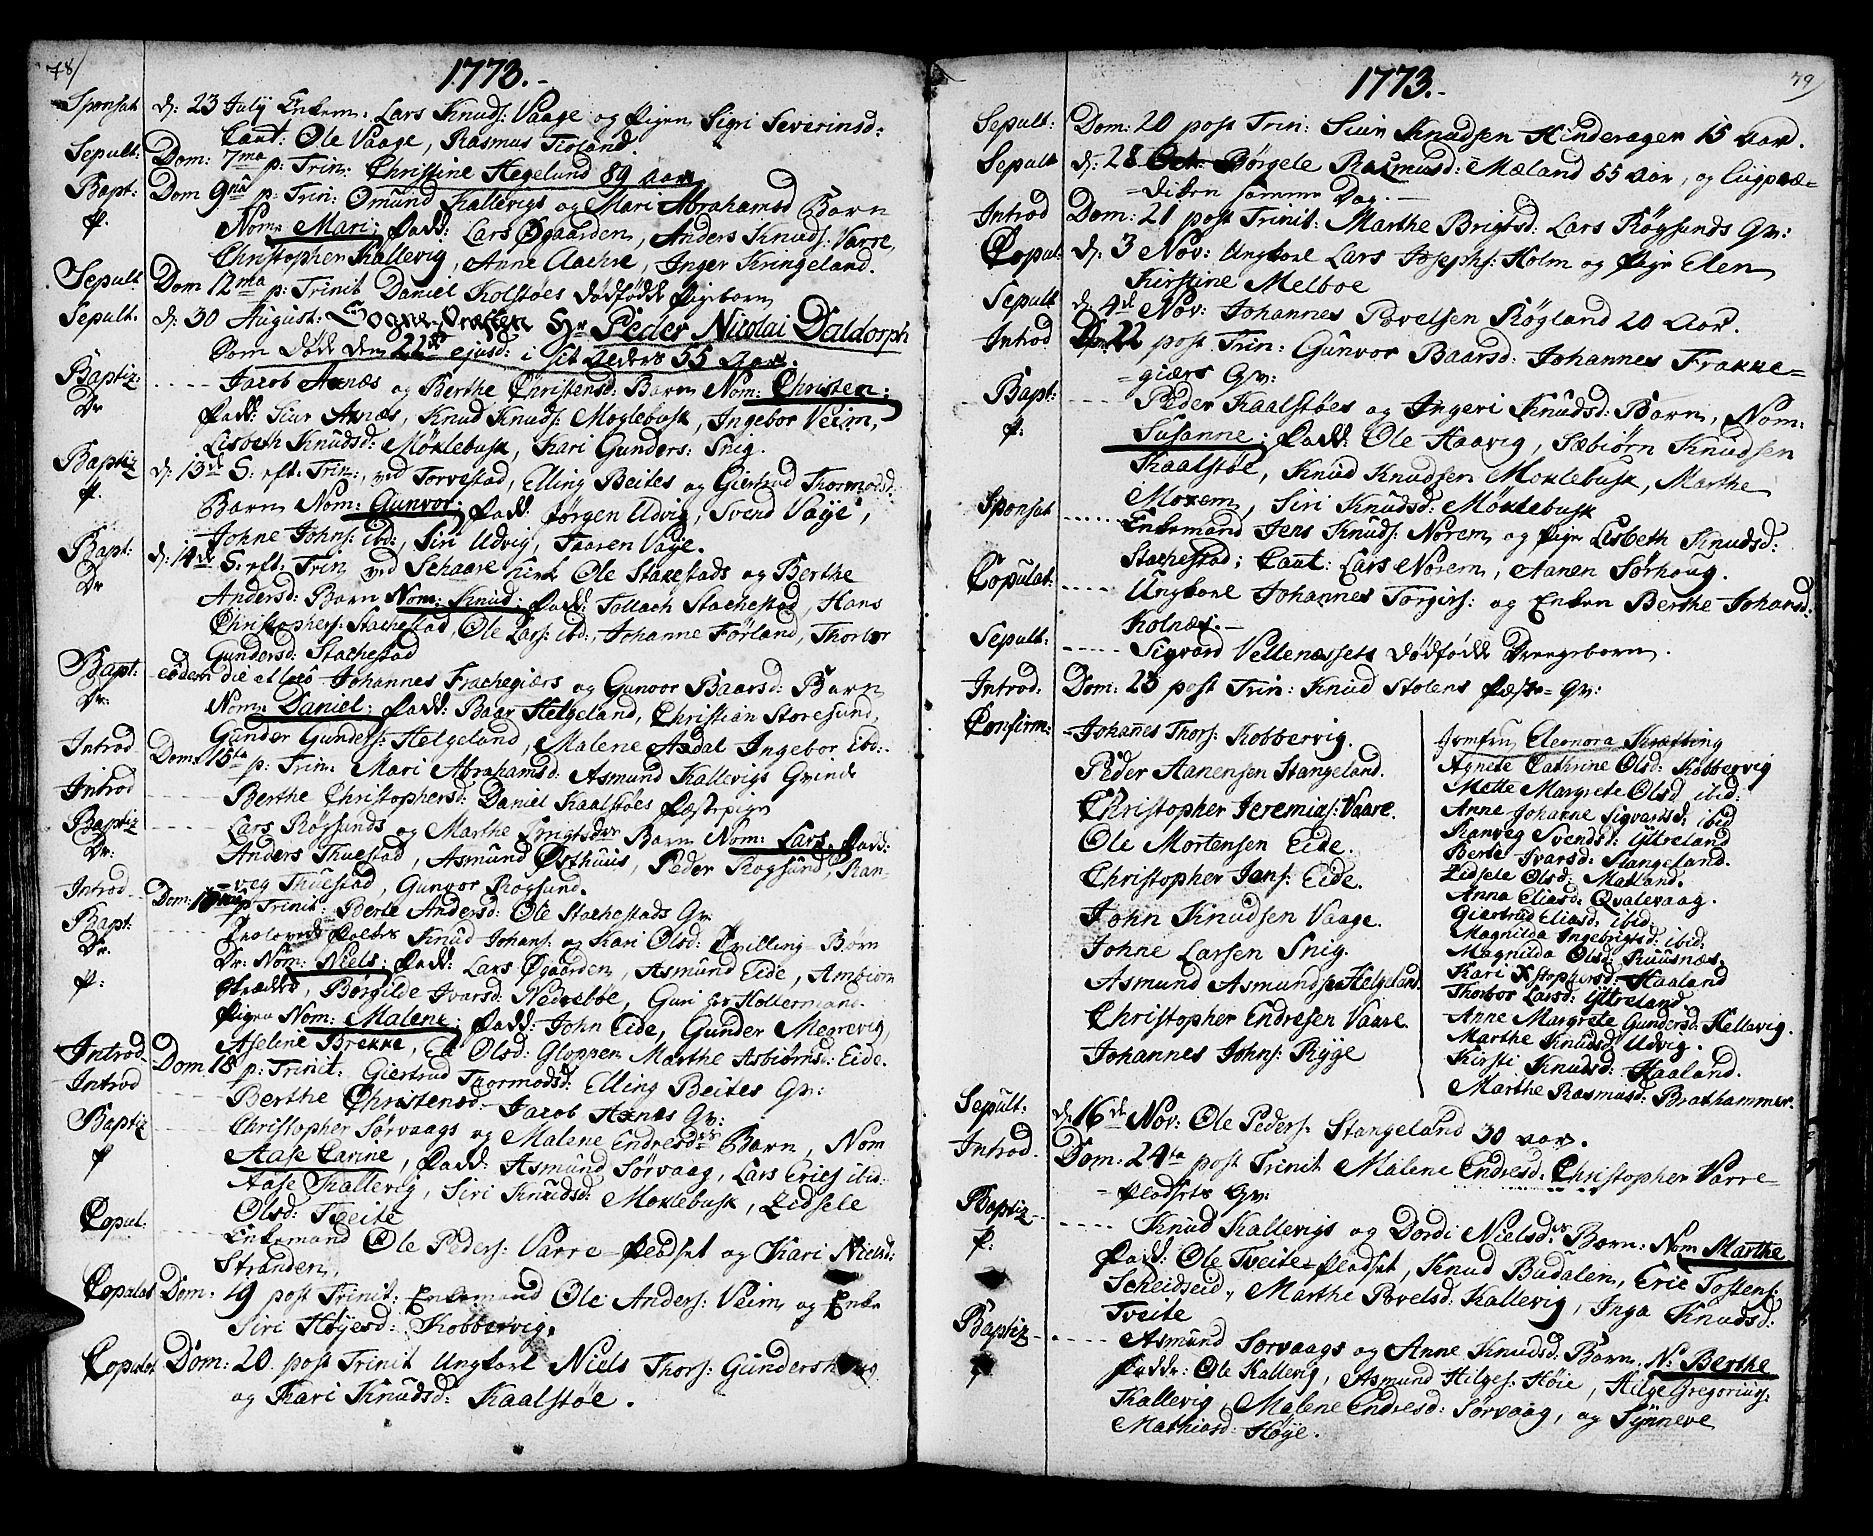 78/
1773.-
Sponsat d: 23 July Enkem. Lars Knuds: Vaage og Pigen Sigri Severinsd:
Caut: Ole Vaage, Rasmus
Sepult: Dom: 7ma p: Trin: Christine Hegelund 89 aar
Bapt: Dom 9na p: Trin: Omund Kallevigs og Mari Abrahamsd Barn
P. Nom: Mari; Fadd: Lars Øgaarden, Anders Knuds: Varre,
Christopher Kallevig, Anne Aachre, Inger Kringeland.
Sepult Dom 12ma p: Trinit Daniel Kolstøes dødfødde Pigebarn
Sepult. d: 30 August: Sogne-Præsten Hr Peder Nicolai Daldorph
Som døde den 22de ejusd: i sit Alders 55 Aar.
Baptiz: ---- Jacob Axnæs og Berthe Christensd: Barn Nom: Christen;
Dr Fadd: Siur Axnæs, Knud Knuds: Moglebusk, Ingebor Veim,
Lisbeth Knudsd: Møklebusk, Kari Gunders: Snig.
Baptiz d: 13de S: eft: Trin:, ved Torvestad, Elling Beites og Giertrud Thormodsd:
P. Barn Nom: Gunvor; Fadd: Jørgen Udvig, Svend Vaje,
Johne Johns: ibd:, Siri Udvig, Taaren Vaje.
Bapt: d: 14de S: eft: Trin ved Schaare Kirk Ole Stakestads og Berthe
Dr Andersd: Barn Nom: Knud; Fadd: Tollach Stachestad, Hans
Christophers: Stachestad, Ole Lars: ibd:, Johanne Førland, Thorbor
Gundersd: Stachestad
Bapt: eodem die et loco Johannes Frachegiærs og Gunvor Baarsd: Barn
Dr: Nom: Daniel; Fadd: Baar Helgeland, Christian Storesund,
Gunder Gunders: Helgeland, Malene Axdal Ingebor ibd:
Introd Dom: 15ta p: Trin: Mari Abrahamsd: Asmund Kallevigs Qvinde
Introd ---- Berthe Christophersd: Daniel Kaalstøes Fæstepige
Baptiz ---- Lars Røgsunds og Marthe Brigtsdr Barn Nom: Lars. Fadd:
Dr: Anders Thuestad, Asmund Østhuus, Peder Rogsund, Ran-
veg Thuestad, Gunvor Rogsund.
Introd Dom: p: Trinit: Berte Andersd: Ole Stachestads Qv:
Bapt: ---- Knud Johans: og Kari Olsd: Tvilling Børn
Dr. Dr: Nom: Niels; Fadd: Lars Øgaarden, Asmund Eide, Ambiørn
P: Børgilde Ivarsd: Nedrebøe, Guri
Pigen Nom: Malene; Fadd: John Eide, Gunder Megrevig,
Aselene Brekke, Olsd: Gloppen Marthe Asbiørnsd: Eide.
Introd. Dom 18 p: Trinit: Giertrud Taarmodsd: Elling Beites Qv:
Introd Berthe Christensd: Jacob Axnæs Qv:
Baptiz ---- Christopher Sørvaags og Malene Endresdrs Barn, Nom
P Aase Carine, Fadd: Asmund Sørvaag, Lars Erics ibid:
Aase Kallevig, Siri Knudsd: Moklebusk, Zidsele
Olsd: Tveite
Copul. ---- Enkemand Ole Peders: Varre-Pladset og Kari Nielsd:
Stranden,
Copulat Dom: 19 post Trinit: Enkemand Ole Anders: Veim og Enke
Siri Høyesd: Kobbervig.
Copulat Dom: 20. post Trinit Ungkarl Niels Thors: Gundershoug
og Kari Knudsd: Kaalstøe.
79/
1773.-
Sepult: Dom: 20 post Trin: Siur Knudsen Hinderager 15 aar.
Sepult d: 28 Octr. Børgele Rasmusd: Mæland 55 aar, og Liigpræ=
=diken samme Dag.-
Introd Dom: 21 post Trinit: Marthe Brigtsd: Lars Røgsunds Qv:
Copul. d: 3 Nov: Ungkarl Lars Josephs: Holm og Pige Elen
Kirstine Melboe
Sepult d: 4de Nov: Johannes Povelsen Røgland 20 Aar.
Introd Dom 22 post Trin: Gunvor Baarsd: Johannes Frakke=
=giærs Qv:
Bapt: ---- Peder Kaalstøes og Ingeri Knudsd: Barn, Nom:
P: Susanne; Fadd: Ole Haavig, Sæbiørn Knudsen
Kaalstøe, Knud Knudsen Moxlebusk, Marthe
Moxem, Siri Knudsd: Møklebusk
Sponsat ---- Enkemand Jens Knuds: Norem og Pige Lisbeth Knudsd:
Stachestad; Caut: Lars Norem, Aanen Sørhoug.
Copulat: ---- Ungkarl Johannes Torgirs: og Enken Berthe Johansd:
Kolnæs.-
Sepult: ---- Sigvard Vellenæssets dødfødde Drengebarn.
Introd: Dom: 23 post Trin: Knud Stolens Fæste=Qv:
Confirm: Johannes Thors: Kobbervig.
Peder Aanensen Stangeland.
Christopher Jeremias: Vaare.
Ole Mortensen Eide.
Christopher Jans: Eide.
John Knudsen Vaage.
Johne Larsen Snig.
Asmund Asmunds: Helgeland.
Christopher Endresen Vaare.
Johannes Johns: Ryge
Jomfru Eleonora Kræfting
Agnete Cathrine Olsd: Kobbervig
Mette Margrete Olsd ibid:
Anne Johanne Sigvardsd: ibid
Ranveg Svendsd: Yttreland
Berte Ivarsd: Stangeland.
Zidsele Olsd: Matland.
Anna Eliasd: Qvalevaag.
Giertrud Eliasd: ibid:
Magnilda Ingebrigtsd: ibid:
Magnilda Olsd: Kuusnæs.
Kari Xstophersd: Haaland
Thorbor Larsd: Yttreland
Anne Margrete Gundersd: Hellevig.
Marthe Knudsd: Udvig.
Kirsti Knudsd: Haaland.
Marthe Rasmusd: Brathammer.
Sepult: d: 16de Nov: Ole Peders: Stangeland 30 aar.
Introd. Dom: 24ta post Trinit Malene Endresd: Christopher Varre=
=Pladsets Qv:
Baptiz ---- Knud Kallevigs og Dordi Nielsdrs Barn: Nom Marthe
P: Fadd: Ole Tveite=Pladset, Knud Budalen, Eric Tostens:
Scheidseid, Marthe Povelsd: Kallevig, Inga Knudsd:
Tveite
Baptiz ---- Asmund Sorvaags og Anne Knudsd: Barn N: Berthe
P Faddr: Ole Kallevig, Asmund Hilges: Høie, Hilge Gregorius:
Kallevig, Malene Endresd: Sørvaag, og Synneve
Mathiasd: Høye.